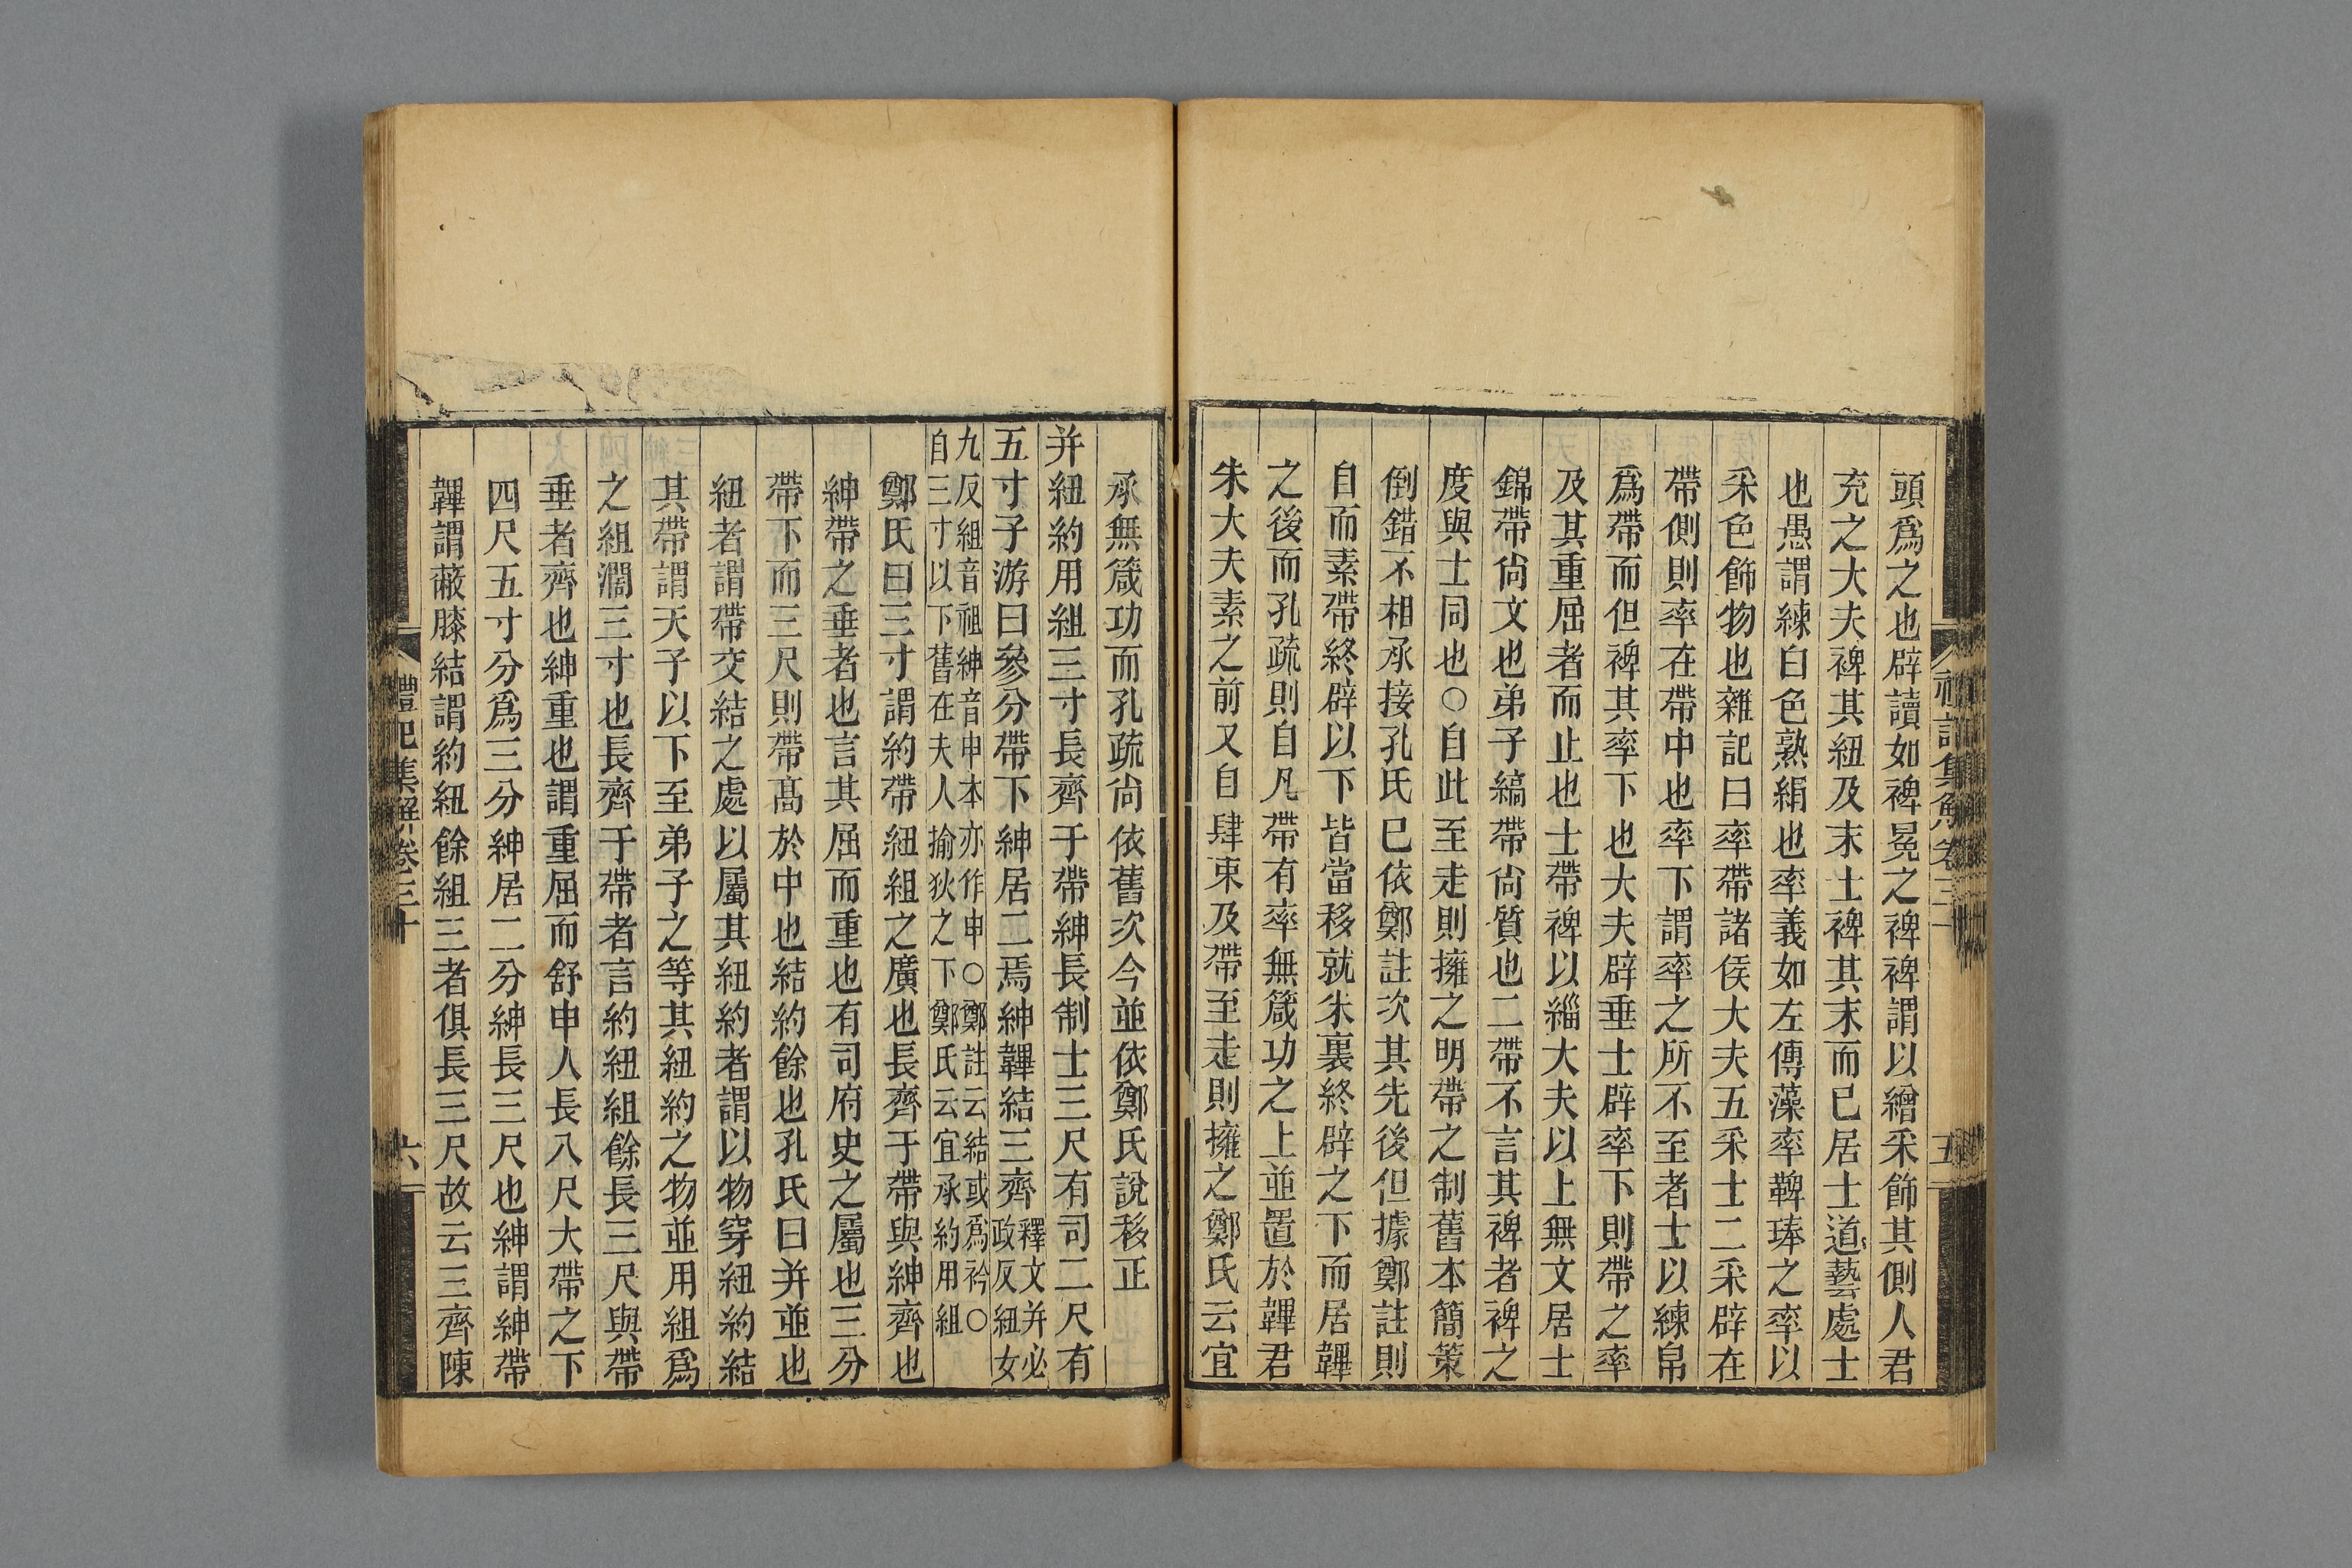 頭爲之也辟讀如裨冕之裨裨謂以繒采飾其側人君
充之大夫裨其紐及末士裨其末而已居士道藝處士
也愚謂練白色熟絹也率義如左傳藻率鞞琫之率以
采色飾物也雜記曰率帶諸侯大夫五采士二采辟在
帶側則率在帶中也率下謂率之所不至者士以練帛
爲帶而但裨其率下也大夫辟垂士辟率下則帶之率
及其重屈者而止也士帶裨以緇大夫以上無文居士
錦帶尙文也弟子縞帶尙質也二帶不言其裨者裨之
度與士同也○自此至走則擁之明帶之制舊本簡策
倒錯不相承接孔氏已依鄭註次其先後但據鄭註則
自而素帶終辟以下皆當移就朱裏終辟之下而居韠
之後而孔疏則自凡帶有率無箴功之上並置於韠君
朱大夫素之前又自肆束及帶至走則擁之鄭氏云宜
禮記集解卷三十
五
承無箴功而孔疏尙依舊次今並依鄭氏說移正
并紐約用組三寸長齊于帶紳長制士三尺有司二尺有
五寸子游曰參分帶下紳居二焉紳韠結三齊釋文并必
政反紐女
九反組音祖紳音申本亦作申○鄭註云結或爲衿○
自三寸以下舊在夫人揄狄之下鄭氏云宜承約用組
鄭氏曰三寸謂約帶紐組之廣也長齊于帶與紳齊也
紳帶之垂者也言其屈而重也有司府史之屬也三分
帶下而三尺則帶高於中也結約餘也孔氏曰并並也
紐者謂帶交結之處以屬其紐約者謂以物穿紐約結
其帶謂天子以下至弟子之等其紐約之物並用組爲
之組濶三寸也長齊于帶者言約紐組餘長三尺與帶
垂者齊也紳重也謂重屈而舒申人長八尺大帶之下
四尺五寸分爲三分紳居二分紳長三尺也紳謂紳帶
韠謂蔽膝結謂約紐餘組三者俱長三尺故云三齊陳
禮記集解卷三十
六